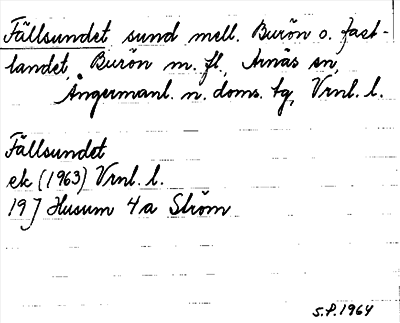 Fällsundet sund mell. Burön o. fast-
landet, Burön m. fl., Arnäs sn,
Ångermanl. n. doms. tg, Vrnl. l.
Fällsundet
ek (1963) Vrnl. l.
19J Husum 4a Ström
S.P. 1964